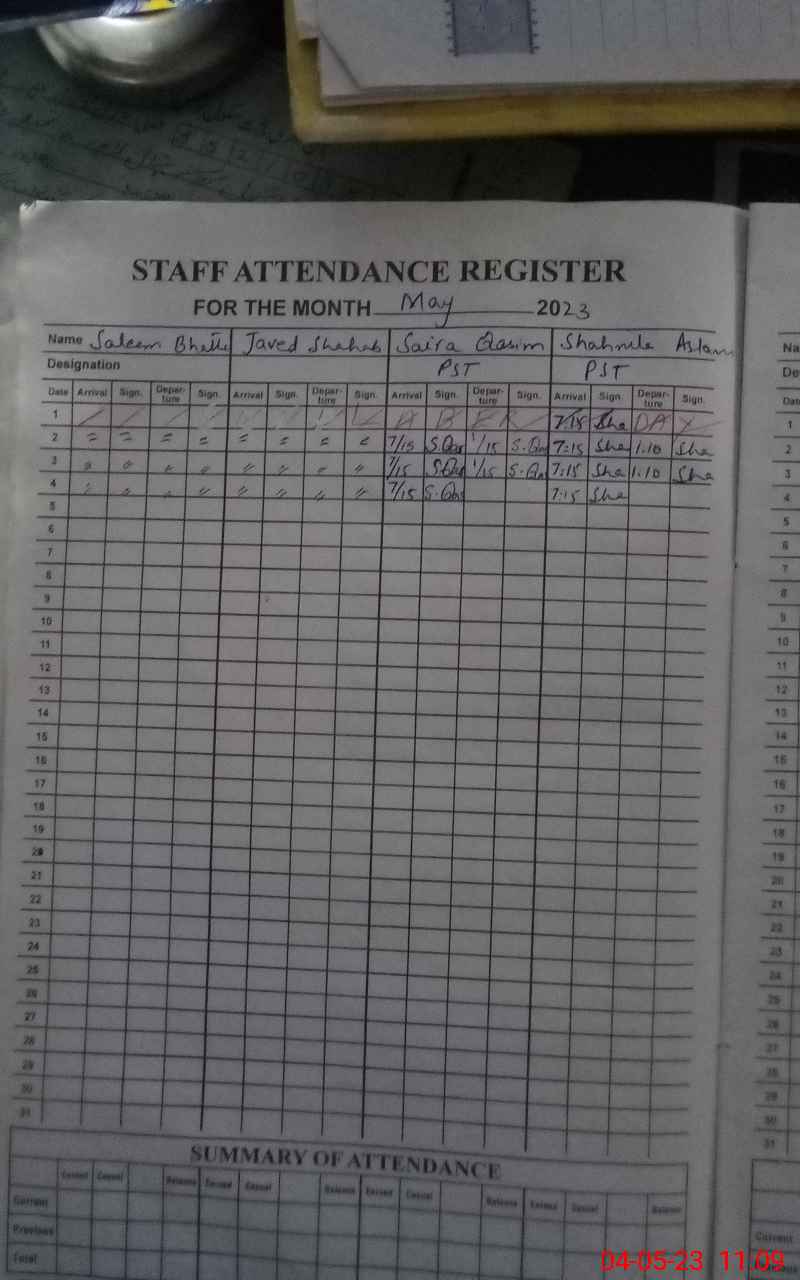 STAFF ATTENDANCE REGISTER
FOR THE MONTH May 2023
Name Saleem Bhatti Javed Shahab Saira Qasim Shahnila Aslam
Designation PST PST
Date Arrival Sign. Depar-ture Sign. Arrival Sign. Depar-ture Sign. Arrival Sign. Depar-ture Sign. Arrival Sign. Depar-ture Sign.
1 L A B E R 7:15 Sha DAY
2 = = = = = = = = 7/15 S.Qas 1/15 S.Qas 7:15 Sha 1.10 Sha
3 〃 〃 〃 〃 〃 〃 〃 〃 7/15 S.Qas 1/15 S.Qas 7:15 Sha 1.10 Sha
4 〃 〃 〃 〃 〃 〃 〃 〃 7/15 S.Qas 7:15 Sha
5
6
7
8
9
10
11
12
13
14
15
16
17
18
19
20
21
22
23
24
25
26
27
28
29
30
31
SUMMARY OF ATTENDANCE
Earned Casual Balance Earned Casual Balance Earned Casual Balance Earned Casual Balance
Current
Previous
Total
Na
De
Date
1
2
3
4
5
6
7
8
9
10
11
12
13
14
15
16
17
18
19
20
21
22
23
24
25
26
27
28
29
30
31
Current
04-05-23 11:09